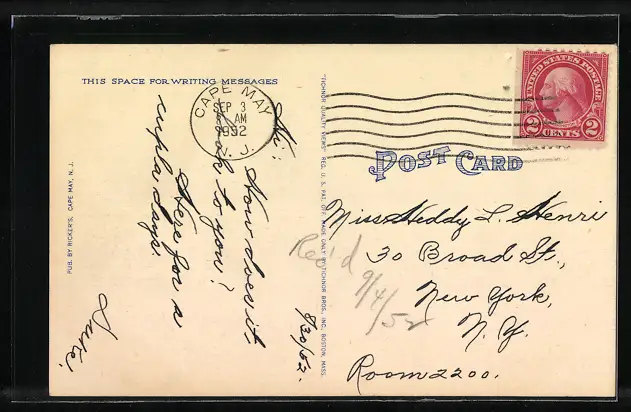 THIS SPACE FOR WRITING MESSAGES
CAPE MAY
SEP 3
AM
N. J.
UNITED STATES POSTAGE
2 CENTS 2
POST CARD
"TICHNOR QUALITY VIEWS" REG. U. S. PAT. OFF. MADE ONLY BY TICHNOR BROS., INC., BOSTON, MASS.
PUB. BY RICKER'S, CAPE MAY, N. J.
8/30/52.
Hi!
How does it
look to you?
Here for a
cupla days.
Luke.
Miss Heddy L. Henri
30 Broad St.,
New York,
N. Y.
Room 2200.
Rec'd
9/4/52